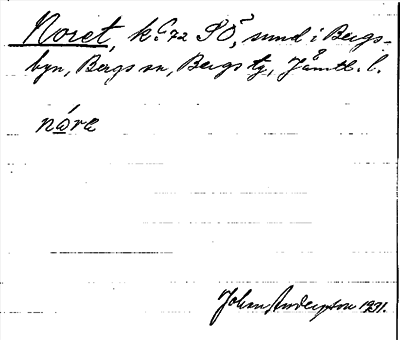 Noret, k. G 72 SÖ, sund i Bergs-
byn, Bergs sn, Bergs tg, Jämtl. l.
nára
Johan Anderson 1931.